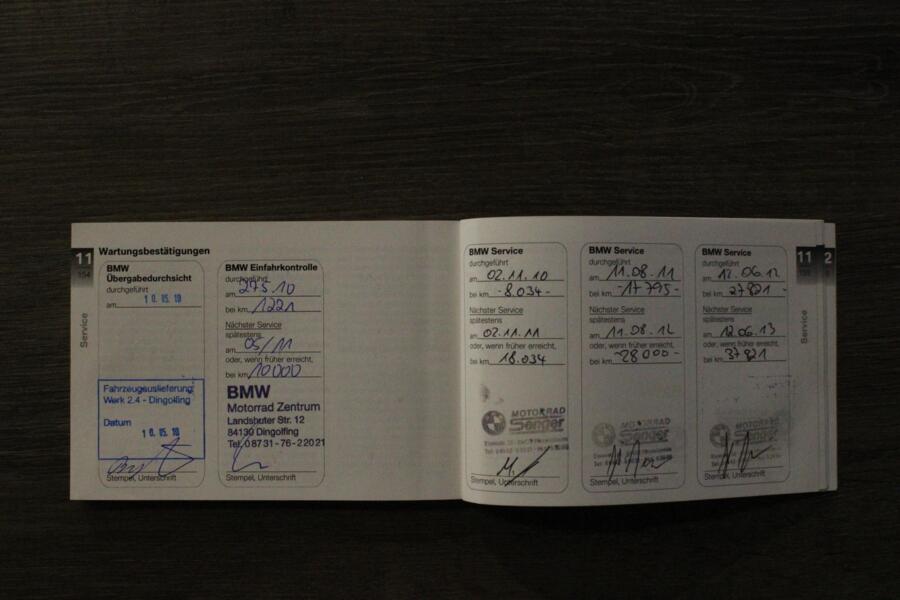 11
154
Service
Wartungsbestätigungen
BMW
Übergabedurchsicht
durchgeführt
am 10. 05. 10
Fahrzeugauslieferung
Werk 2.4 - Dingolfing
Datum
10. 05. 10
Stempel, Unterschrift
BMW Einfahrkontrolle
durchgeführt
am 27.5.10
bei km 1221
Nächster Service
spätestens
am 05/11
oder, wenn früher erreicht,
bei km 10000
BMW
Motorrad Zentrum
Landshuter Str. 12
84130 Dingolfing
Tel. 08731-76-22021
Stempel, Unterschrift
BMW Service
durchgeführt
am 02.11.10
bei km -8.034-
Nächster Service
spätestens
am 02.11.11
oder, wenn früher erreicht,
bei km 18.034
MOTORRAD
Senger
Stempel, Unterschrift
BMW Service
durchgeführt
am 11.08.11
bei km -17795-
Nächster Service
spätestens
am 11.08.12
oder, wenn früher erreicht,
bei km -28000-
MOTORRAD
Senger
Stempel, Unterschrift
BMW Service
durchgeführt
am 12.06.12
bei km 27821-
Nächster Service
spätestens
am 12.06.13
oder, wenn früher erreicht,
bei km 37821
MOTORRAD
Senger
Stempel, Unterschrift
11
Service
2